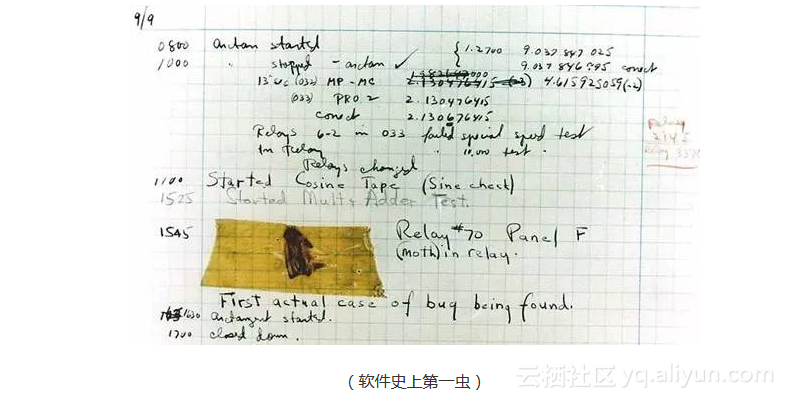 9/9
0800 Antan started
1000 " stopped - antan ✓ { 1.2700 9.037 847 025
9.037 846 995 correct
13"uc (032) MP-MC 2.130476415 (-3) 4.615925059(-2)
(033) PRO 2 2.130476415
correct 2.130676415
Relays 6-2 in 033 failed special speed test
In Relay " 10,000 test .
Relays changed
Relay
2145
Relay 3370
1100 Started Cosine Tape (Sine check)
1525 Started Mult + Adder Test.
1545 Relay #70 Panel F
(Moth) in relay.
First actual case of bug being found.
1630 Antangent started.
1700 closed down.
(软件史上第一虫)
云栖社区 yq.aliyun.com